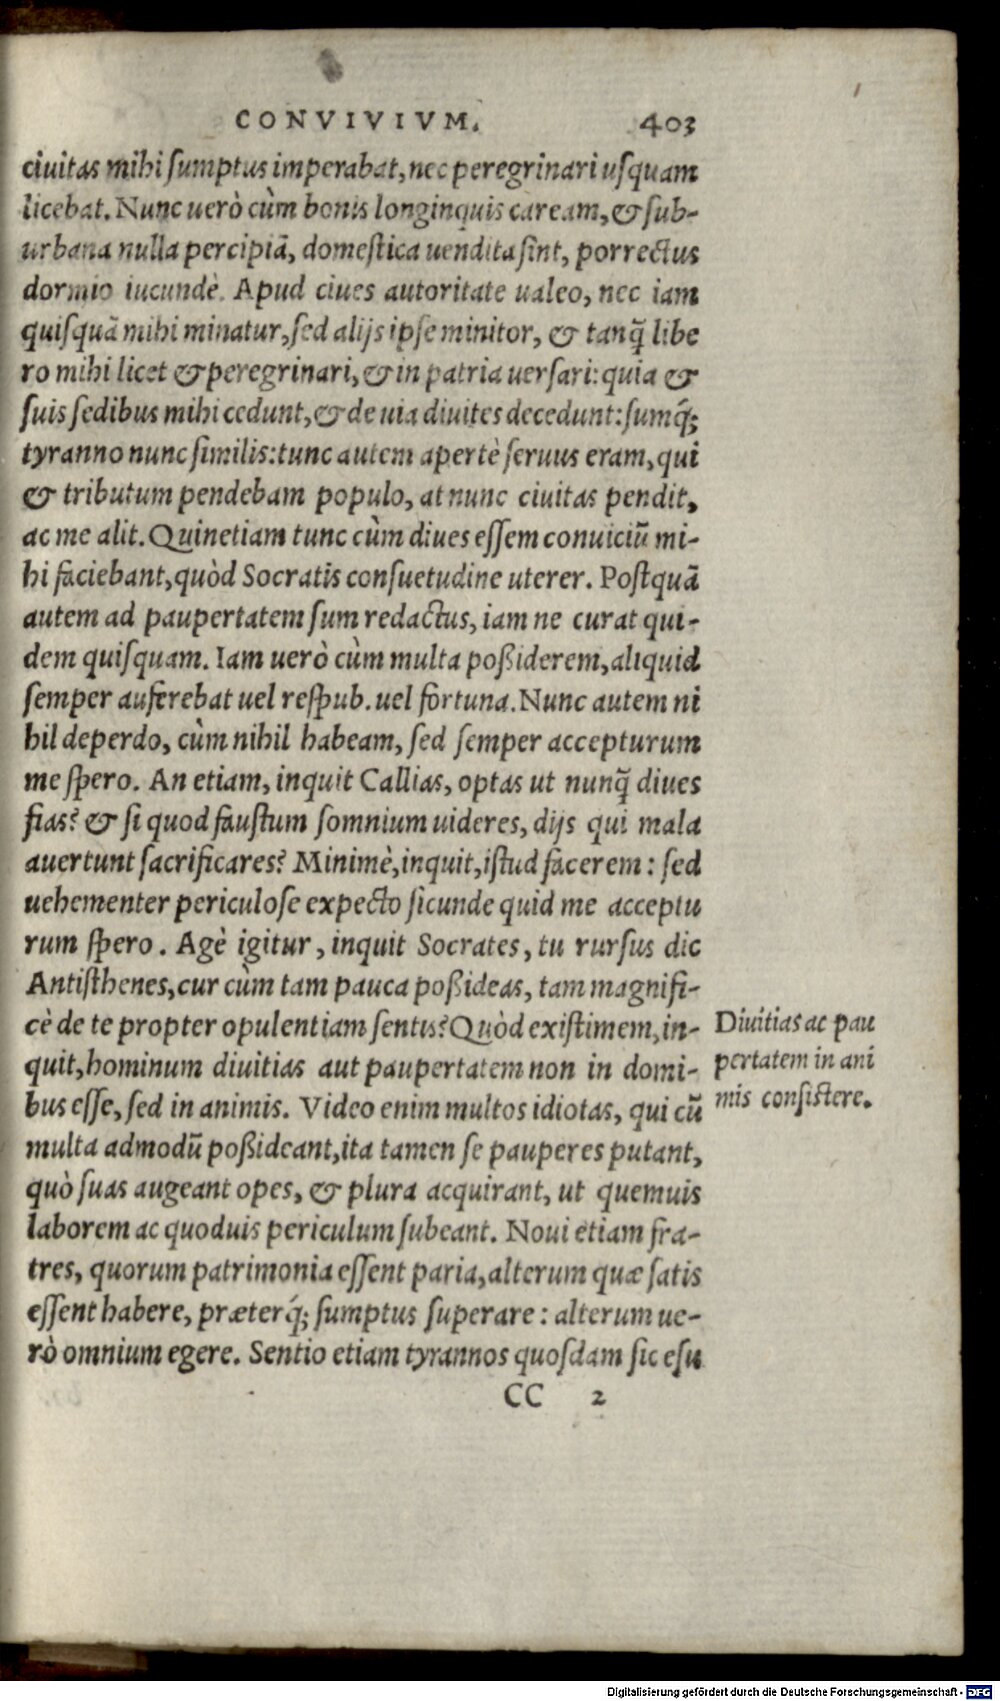 CONVIVIVM. 403
ciuitas mihi sumptus imperabat, nec peregrinari usquam
licebat. Nunc uerò cùm bonis longinquis caream, & sub-
urbana nulla percipiã, domestica uendita sint, porrectus
dormio iucundè. Apud ciues autoritate ualeo, nec iam
quisquã mihi minatur, sed alijs ipse minitor, & tanq̃ libe
ro mihi licet & peregrinari, & in patria uersari: quia &
suis sedibus mihi cedunt, & de uia diuites decedunt: sumq́;
tyranno nunc similis: tunc autem apertè seruus eram, qui
& tributum pendebam populo, at nunc ciuitas pendit,
ac me alit. Quinetiam tunc cùm diues essem conuiciũ mi-
hi faciebant, quòd Socratis consuetudine uterer. Postquã
autem ad paupertatem sum redactus, iam ne curat qui-
dem quisquam. Iam uerò cùm multa poßiderem, aliquid
semper auferebat uel respub. uel fortuna. Nunc autem ni
hil deperdo, cùm nihil habeam, sed semper accepturum
me spero. An etiam, inquit Callias, optas ut nunq̃ diues
fias? & si quod faustum somnium uideres, dijs qui mala
auertunt sacrificares? Minimè, inquit, istud facerem: sed
uehementer periculose expecto sicunde quid me acceptu
rum spero. Agè igitur, inquit Socrates, tu rursus dic
Antisthenes, cur cùm tam pauca poßideas, tam magnifi-
cè de te propter opulentiam sentis? Quòd existimem, in-
quit, hominum diuitias aut paupertatem non in domi-
bus esse, sed in animis. Video enim multos idiotas, qui cũ
multa admodũ poßideant, ita tamen se pauperes putant,
quò suas augeant opes, & plura acquirant, ut quemuis
laborem ac quoduis periculum subeant. Noui etiam fra-
tres, quorum patrimonia essent paria, alterum quæ satis
essent habere, præterq́; sumptus superare: alterum ue-
rò omnium egere. Sentio etiam tyrannos quosdam sic esu
CC 2
Diuitias ac pau
pertatem in ani
mis consistere.
Digitalisierung gefördert durch die Deutsche Forschungsgemeinschaft - DFG